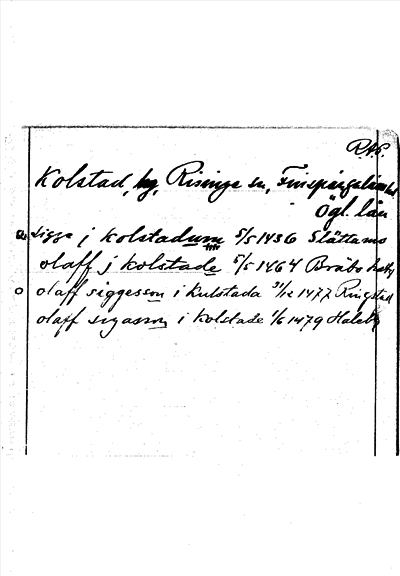 RAP.
Kolstad, by, Risinge sn, Finspångaläns hd,
Ögl. län
sigge j kolstadum 5/5 1436 Slättamo
olaff j kolstade 5/5 1464 Bråbo
olaff siggesson i kulstada 31/12 1477 Ringstad
olaff sigasson i kolstade 1/6 1479